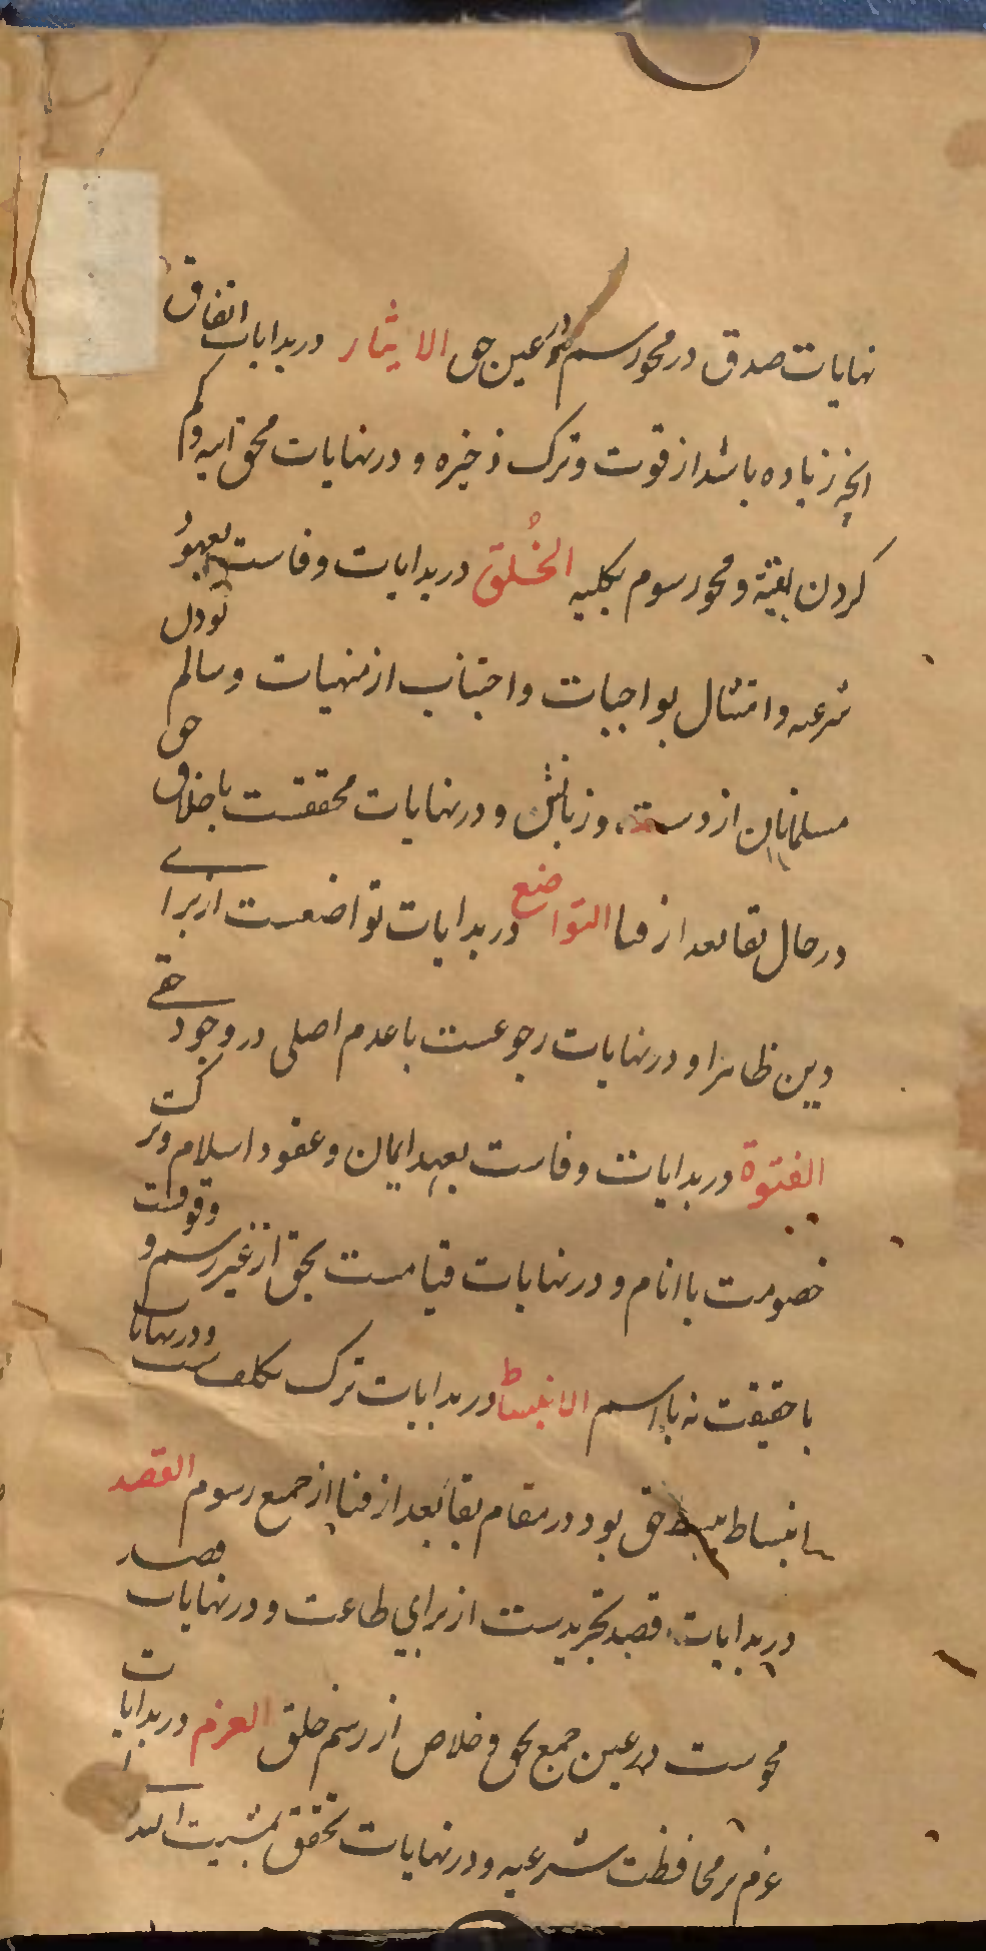 نهایات صدق در محو رسم در عین حق الایثار در بدایات انفاق
آنچه زیاده باشد از قوت و ترک ذخیره و در نهایات محق انیه و کم
کردن بقیه و محو رسوم بکلیه الخُلق در بدایات وفاست بعهود
شرعیه و امتثال بواجبات و اجتناب از منهیات و سالم بودن
مسلمانان از دست و زبانش و در نهایات محققست باخلاق حق
در حال بقا بعد از فنا التواضع در بدایات تواضعست از برای
دین ظاهرا و در نهایات رجوعست با عدم اصلی در وجود حقی
الفتوة در بدایات وفاست بعهد ایمان و عقود اسلام و ترکت
خصومت با انام و در نهایات قیامست بحق از غیر رسم و وقوفست
با حقیقت نه با اسم الانبساط در بدایات ترک تکلفست و در نهایات
انبساط ببسط حق بود در مقام بقا بعد از فنا از جمیع رسوم القصد
در بدایات قصد تجریدست از برای طاعت و در نهایات قصد
محوست در عین جمع بحق و خلاص از رسم خلق العزم در بدایات
عزم بر محافظت شرعیه و در نهایات تحقق بمشیت